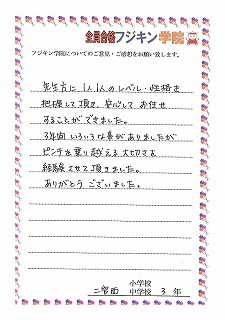 全員合格フジキン学院
フジキン学院についてのご意見・ご感想をお願い致します。
先生方に1人1人のレベル・性格を
把握して頂き、安心してお任せ
することができました。
3年間いろいろな事がありましたが
ピンチを乗り越える大切さを
経験させて頂きました。
ありがとうございました。
小学校
中学校 3 年